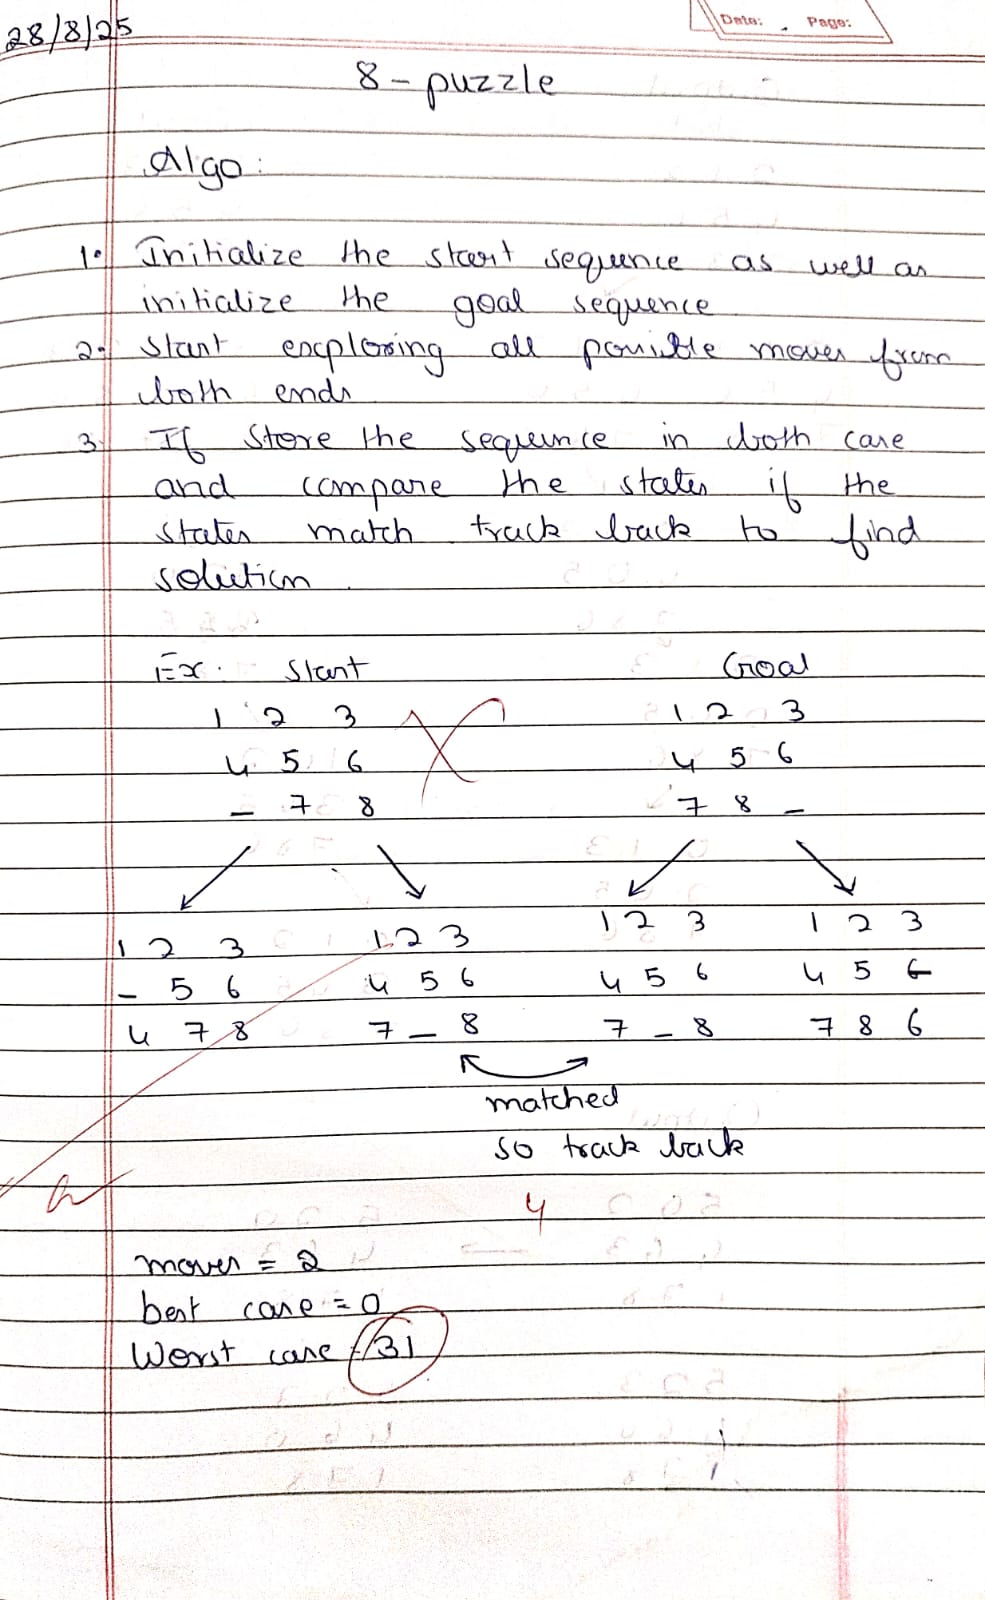 28/8/25
Date: Page:
8 - puzzle
Algo:
1. Initialize the start sequence as well as
initialize the goal sequence
2. Start exploring all possible moves from
both ends
3. If Store the sequence in both case
and compare the states if the
states match track back to find
solution.
Ex: Start Goal
1 2 3 1 2 3
4 5 6 4 5 6
_ 7 8 7 8 _
1 2 3 1 2 3 1 2 3 1 2 3
_ 5 6 4 5 6 4 5 6 4 5 6
4 7 8 7 _ 8 7 _ 8 7 8 6
matched
so track back
4
moves = 2
best case = 0
Worst case = 31